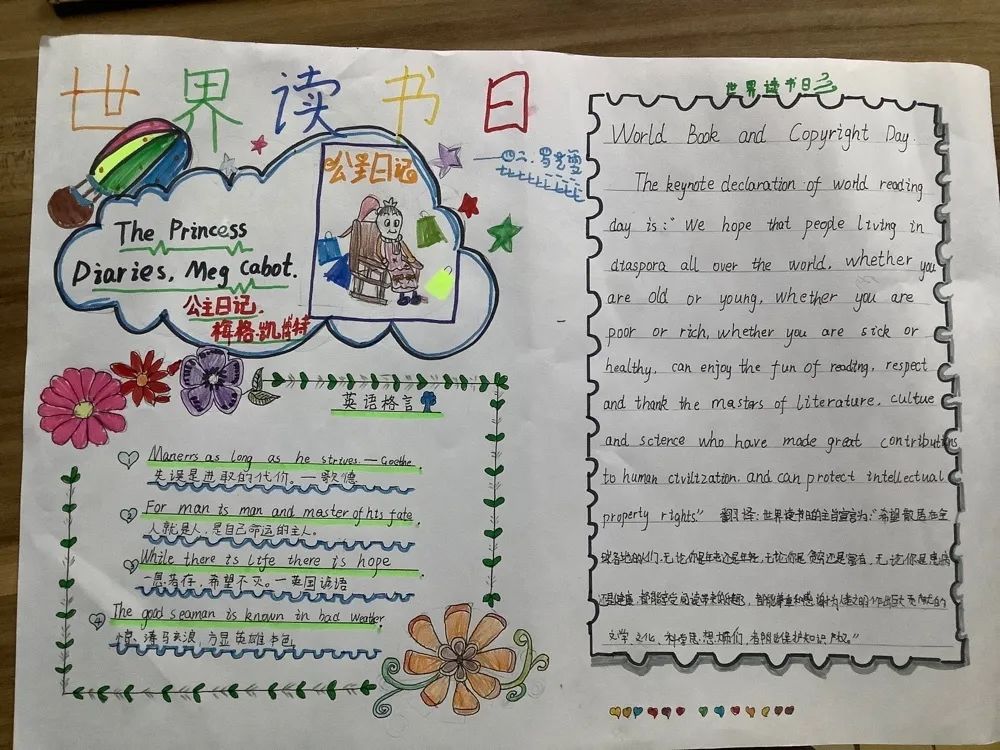 世界读书日
The Princess
Diaries. Meg Cabot.
公主日记.
梅格·凯博特
公主日记
四二.
英语格言
Manerrs as long as he strives.—Goethe.
失误是进取的代价。—歌德
For man is man and master of his fate.
人就是人,是自己命运的主人。
While there is life there is hope
一息若存,希望不灭。—英国谚语
4 The good seaman is known in bad weather.
惊涛骇浪,方显英雄本色.
世界读书日
World Book and Copyright Day.
The keynote declaration of world reading
day is:" We hope that people living in
diaspora all over the world, whether you
are old or young, whether you are
poor or rich, whether you are sick or
healthy, can enjoy the fun of reading, respect
and thank the masters of literature, cultue
and science who have made great contributions
to human civilization, and can protect intellectual
property rights." 翻译:世界读书日的主旨宣言为:"希望散居在全
球各地的人们,无论你是年老还是年轻,无论你是贫穷还是富有,无论你是患病
还是健康,都能享受阅读带来的乐趣,都能尊重和感谢为人类文明作出巨大贡献的
文学、文化、科学思想大师们,者阝能保护知识产权。"